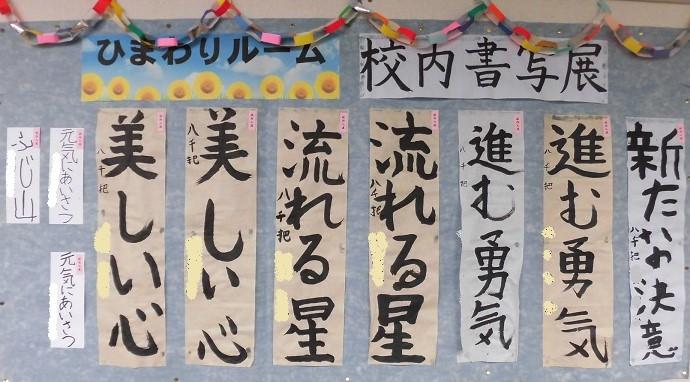 ひまわりルーム
校内書写展
新たな決意
八千把
進む勇気
八千把
進む勇気
八千把
流れる星
八千把
流れる星
八千把
美しい心
八千把
美しい心
八千把
元気にあいさつ
元気にあいさつ
ふじ山